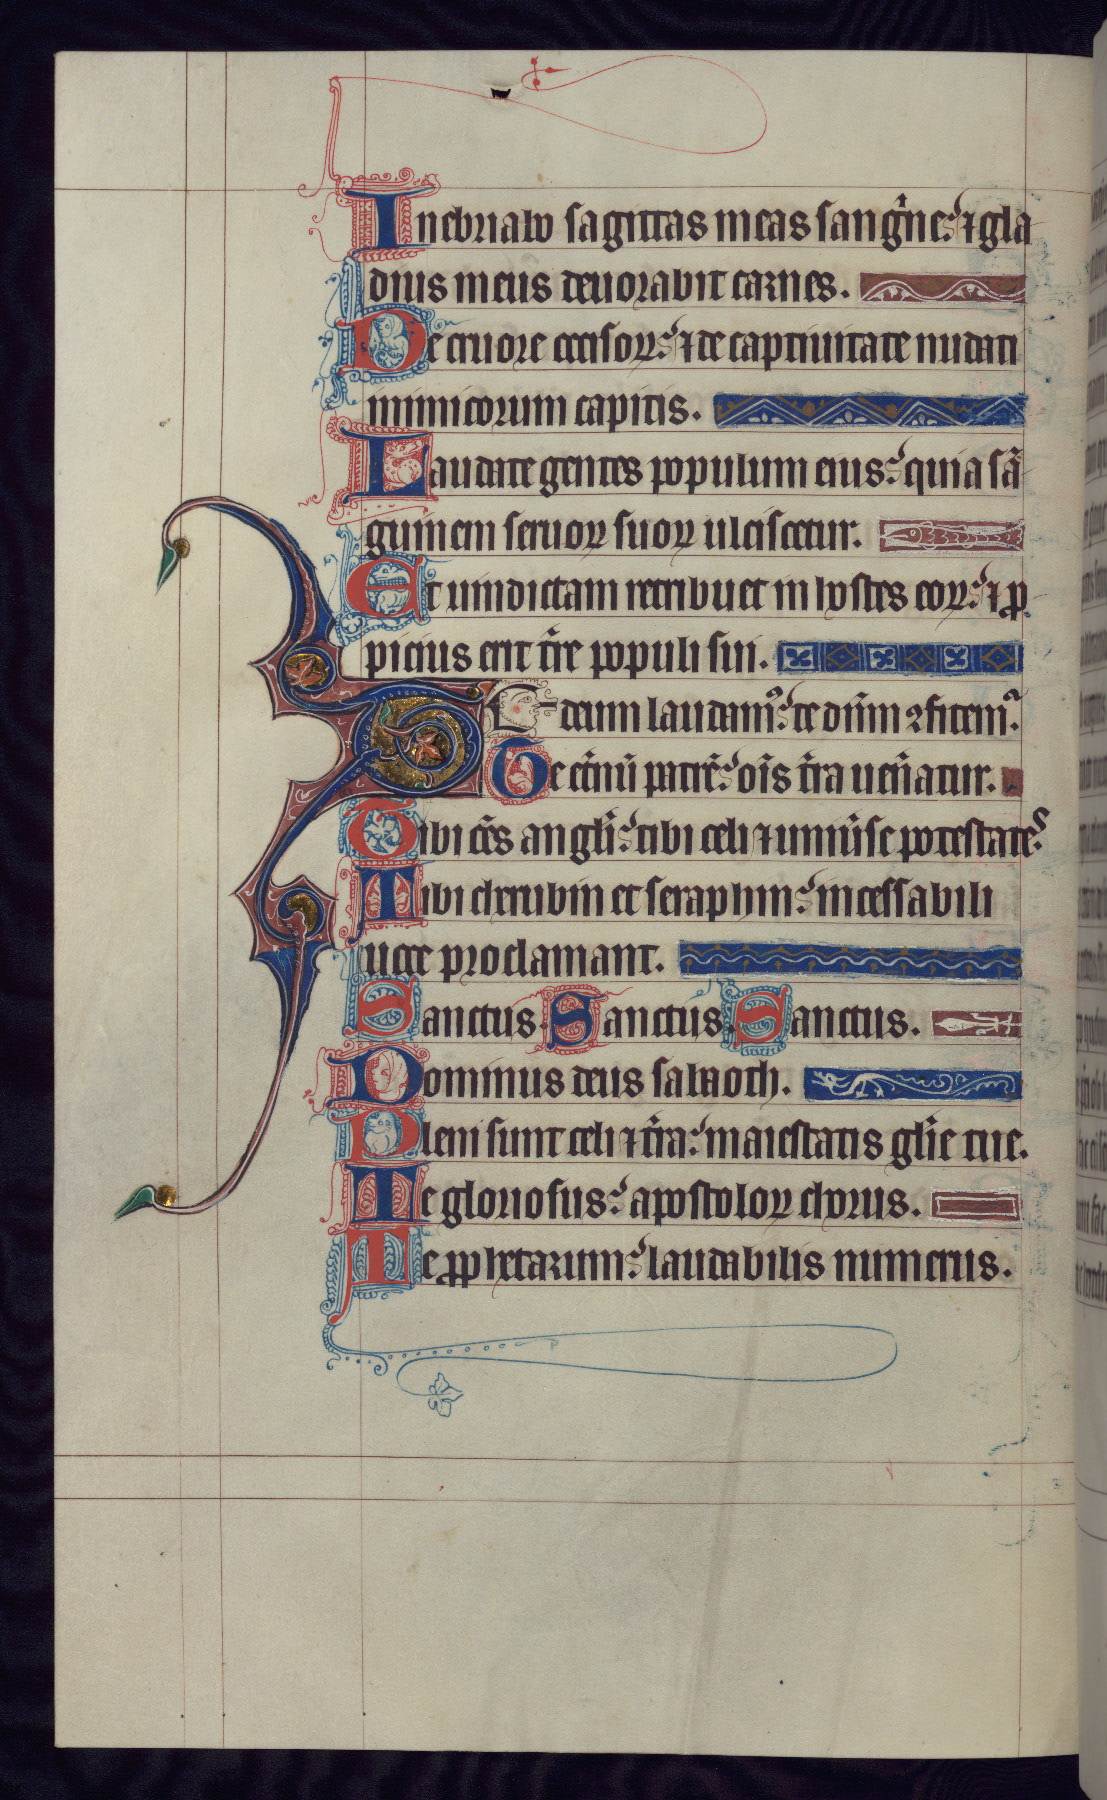 Inebriabo sagittas meas sang̾ne: ⁊ gla
dius meus deuorabit carnes.
De cruore occisoꝝ: ⁊ de captiuitate nudati
inimicorum capitis.
Laudate gentes populum eius: quia sā
guinem seruoꝝ suoꝝ ulciscetur.
Et uindictam retribuet in hostes eoꝝ: ⁊ ꝓ
picius erit t̾re populi sui.
TE deum laudamꝰ: te dn̄m ꝯfitemᷣ.
Te et̾nū patrē: oīs t̾ra uen̄atur.
Tibi oēs angl̄i: tibi celi ⁊ uniu̾se potestateˢ
Tibi cherubin et seraphin: incessabili
uoce proclamant.
Sanctus. Sanctus. Sanctus.
Dominus deus sabaoth.
Pleni sunt celi ⁊ t̾ra: maiestatis gl̄ie tue.
Te gloriosus: apostoloꝝ chorus.
Te ꝓphetarum: laudabilis numerus.